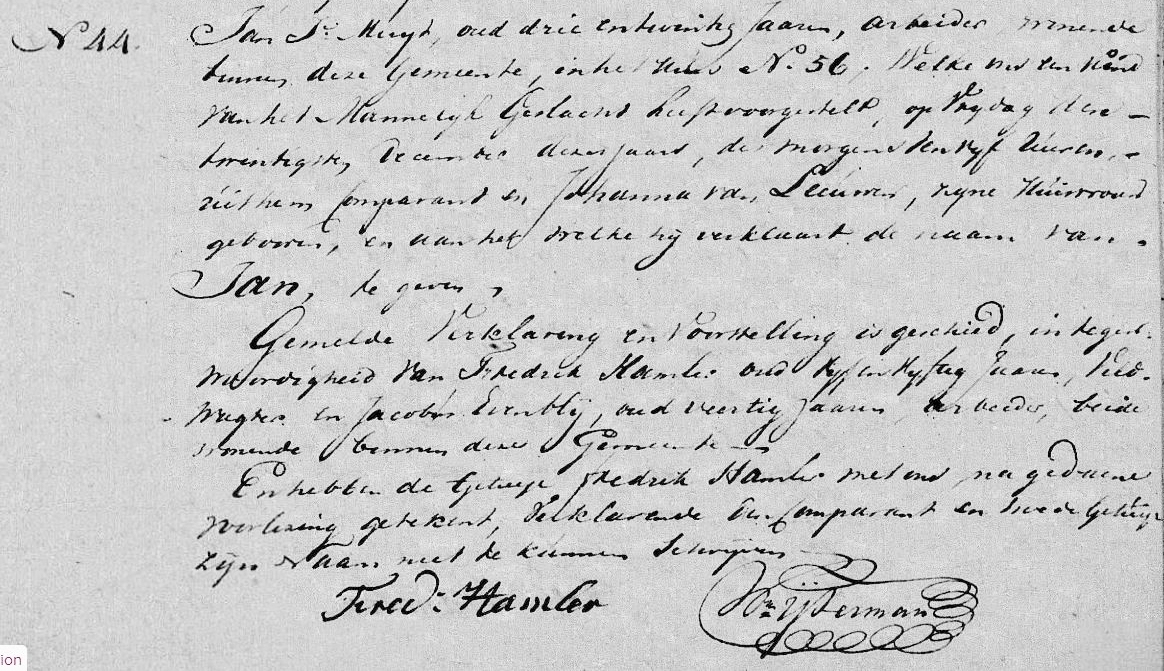 N 44. Jan Js. Muyt, oud drie entwintig Jaaren, arbeider, wonende
binnen deze Gemeente, in het Huis No. 56. Welke ons een kind
van het Mannelijk Geslacht heeft voorgesteld, op Vrydag den
twintigste December dezes jaars, des morgens ten vyf Uuren,
uit hem Comparant en Johanna van Leeuwen, zyne Huisvrouw
geboren, en aan het welke hij verklaart de naam van
Jan, te geven,
Gemelde Verklaring en Voorstelling is geschied, in tegen-
woordigheid van Fredrik Hamler oud vyf en vyftig Jaaren, Veld-
wagter en Jacobus Evenblij, oud veertig jaaren arbeider, beide
wonende binnen deze Gemeente
En hebben de Getuige fredrik Hamler met ons na gedaene
voorlezing getekent, Verklarende den Comparant en tweede Getuige
Zijn Naam niet te kunnen Schrijven
Fredk: Hamler Wm. IJserman
ion